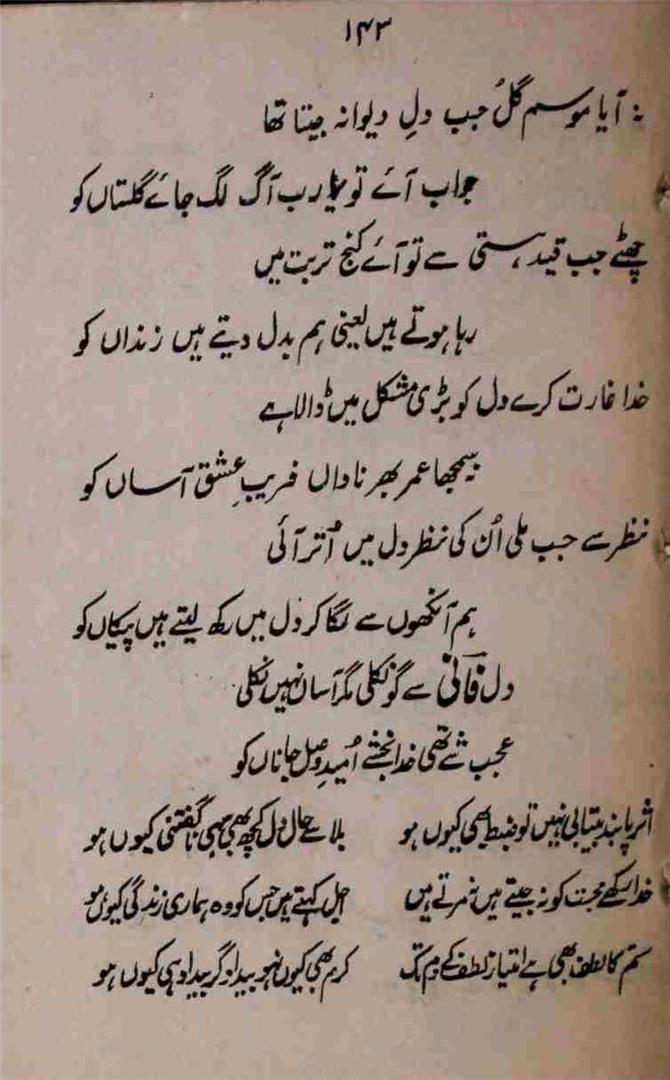 ۱۴۳
نہ آیا موسم گُل جب دلِ دیوانہ جیتا تھا
جواب آئے تو یارب آگ لگ جائے گلستاں کو
چھٹے جب قید ہستی سے تو آئے کنج تربت میں
رہا ہوتے ہیں یعنی ہم بدل دیتے ہیں زنداں کو
خدا غارت کرے دل کو بڑی مشکل میں ڈالا ہے
یہ سمجھا عمر بھر ناداں فریبِ عشق آساں کو
نظر سے جب ملی اُن کی نظر دل میں اُتر آئی
ہم آنکھوں سے لگا کر دل میں رکھ لیتے ہیں پیکاں کو
دل فانی سے گو نکلی مگر آساں نہیں نکلی
عجب شے تھی خدا بخشے اُمیدِ وصلِ جاناں کو
اثر پابند بیتابی نہیں تو ضبط بھی کیوں ہو بلا سے حال دل کچھ بھی سہی ناگفتنی کیوں ہو
خدا رکھے محبت کو نہ جیتے ہیں نہ مرتے ہیں اجل کہتے ہیں جس کو وہ ہماری زندگی کیوں ہو
ستم کا لطف بھی ہے امتیاز لطف کے دم تک کرم بھی کیوں نہ ہو بیداد گر بیداد ہی کیوں ہو